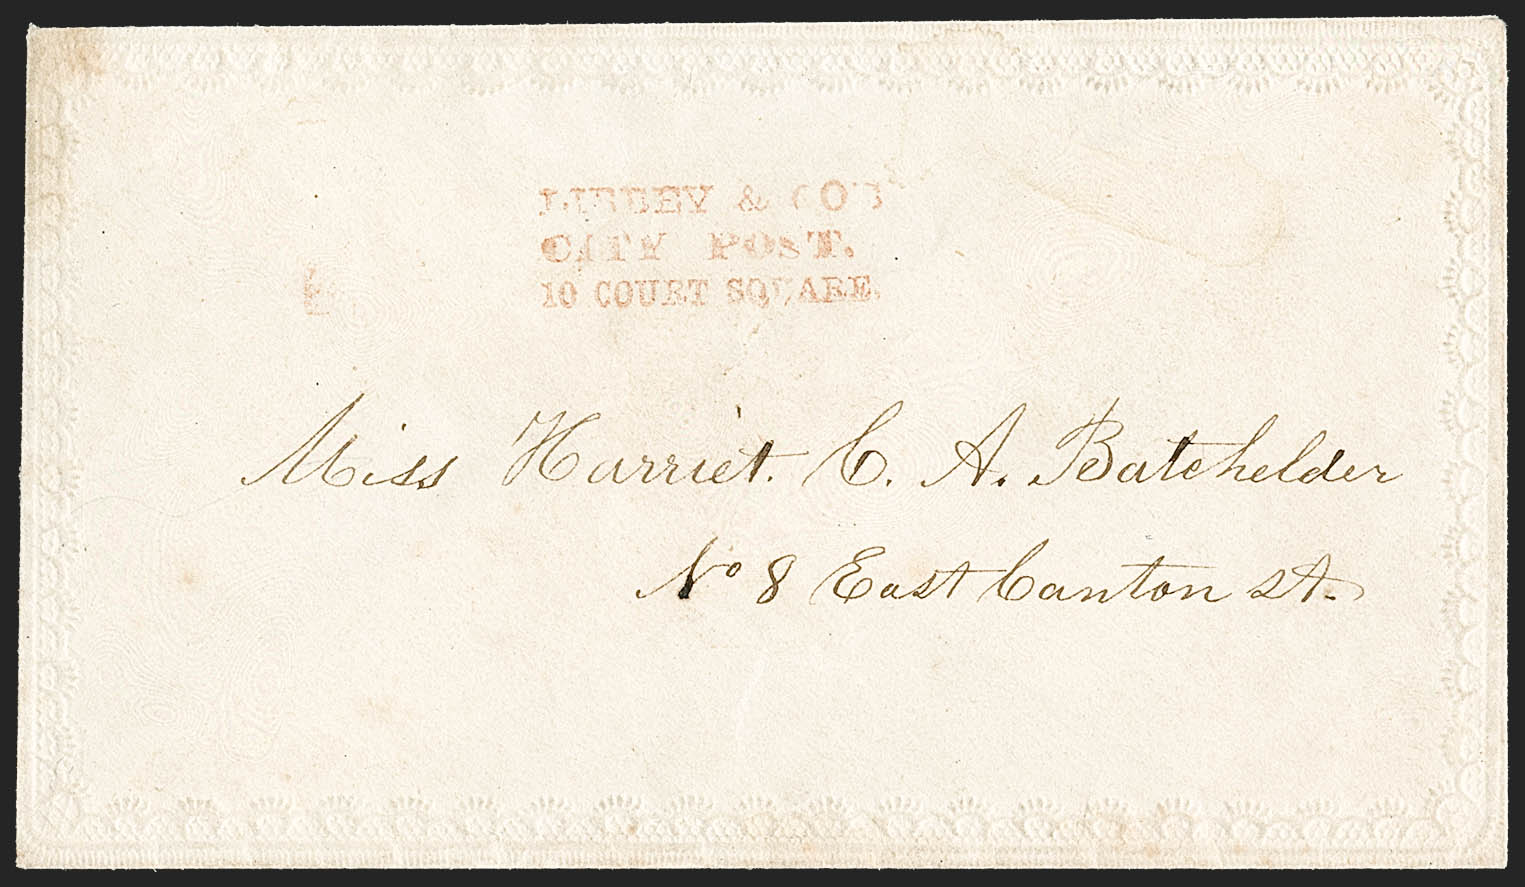 LIBBEY & CO'S
CITY POST.
10 COURT SQUARE.
Miss Harriet. C. A. Batchelder
No 8 East Canton St.